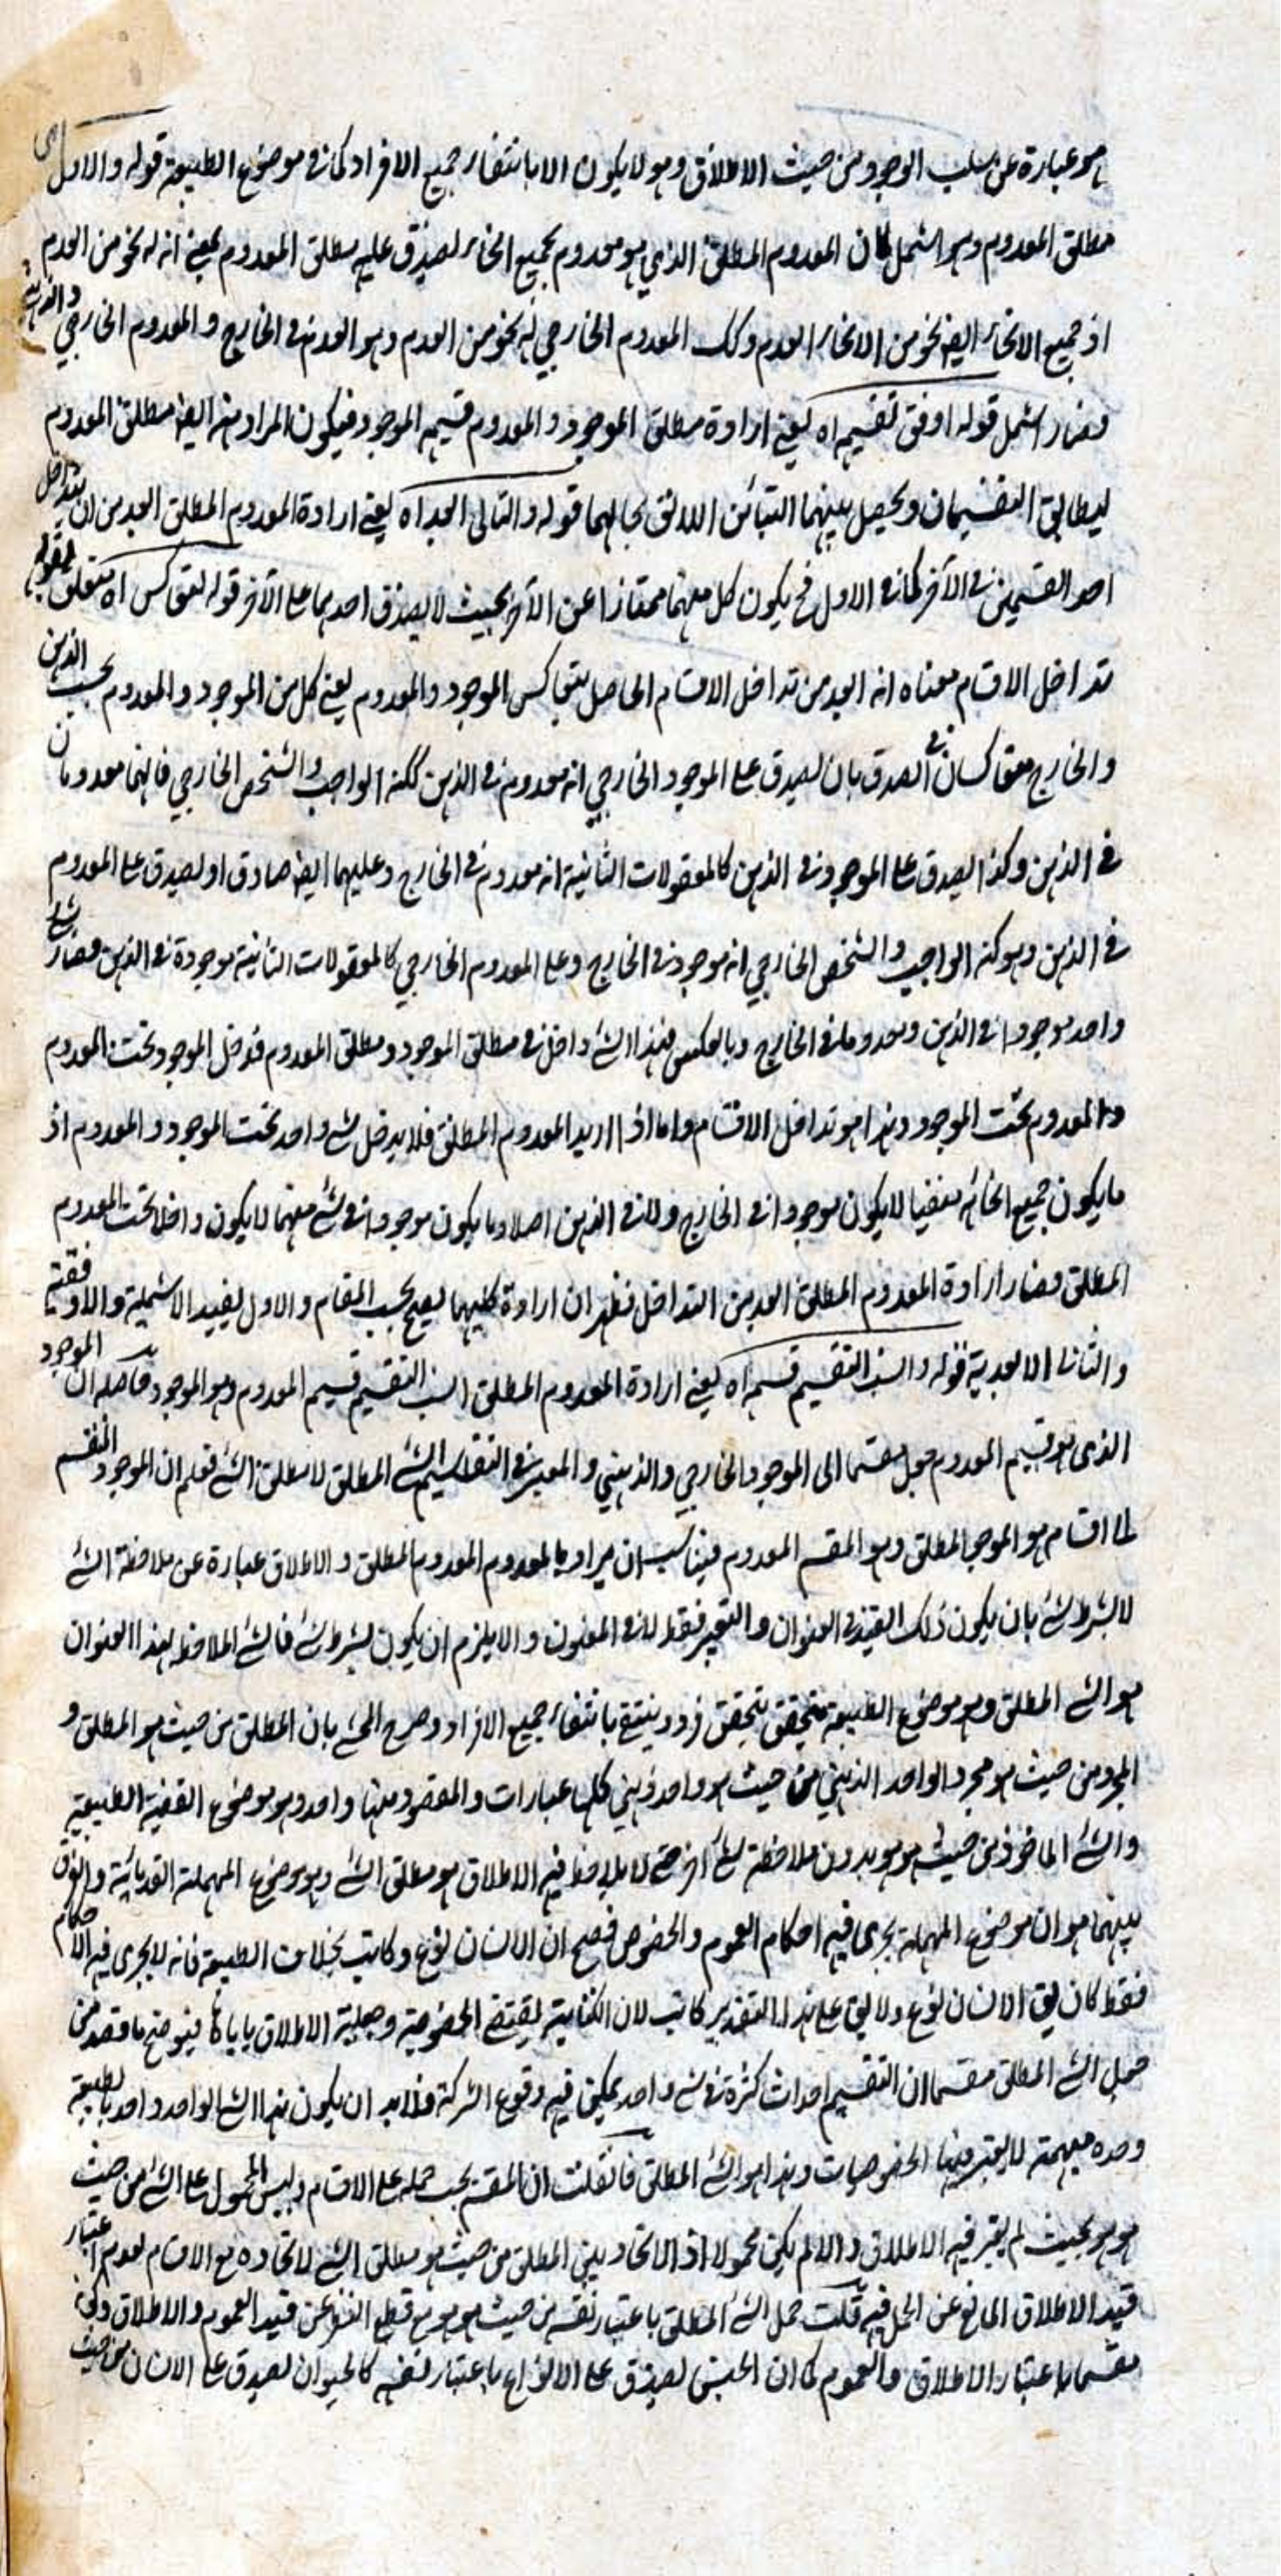 هو عبارة عن سلب الوجود من حيث الاطلاق وهو لا يكون الا بانتفاء جميع الافراد كما في موضوع الطبيعة قوله والاول اى
مطلق المعدوم وهو اشمل كان المعدوم المطلق الذي هو معدوم بجميع انحائه لصدق عليه مطلق المعدوم بمعنى انه له نحو من العدم
اذ جميع الانحاء ايضا نحو من الانحاء العدم وكك المعدوم الخارجي له نحو من العدم وهو العدم في الخارج والمعدوم الخارجي والذهني
فصار اشمل قوله اوفق تقسيمه اه يعني ارادة مطلق الموجود والمعدوم قسيم الموجود فيكون المراد منه ايضا مطلق المعدوم
ليطابق التقسيمان ويحصل بينهما التباين اللائق بحالهما قوله والثاني ابعد اه يعني ارادة المعدوم المطلق ابعد من ان يتداخل
احد القسمين في الآخر كما في الاول فح يكون كل منهما ممتازا عن الآخر بحيث لا يصدق احدهما على الآخر قوله لتعاكس اه متعلق بقوله
تداخل الاقسام معناه انه ابعد من تداخل الاقسام الحاصل بتعاكس الموجود والمعدوم يعني كل من الموجود والمعدوم بحسب الذهن
والخارج متعاكسان في الصدق بان يصدق على الموجود الخارجي انه معدوم في الذهن ككنه الواجب والشخص الخارجي فانهما معدومان
في الذهن وكذا يصدق على الموجود في الذهن كالمعقولات الثانية انه معدوم في الخارج وعليهما ايضا صادق او يصدق على المعدوم
في الذهن وهو كنه الواجب والشخص الخارجي انه موجود في الخارج وعلى المعدوم الخارجي كالمعقولات الثانية موجودة في الذهن فصار شئ
واحد موجودا في الذهن ومعدوما في الخارج وبالعكس فهذا الشئ داخل في مطلق الموجود ومطلق المعدوم فدخل الموجود تحت المعدوم
والمعدوم تحت الموجود وهذا هو تداخل الاقسام واما اذا اريد المعدوم المطلق فلا يدخل شئ واحد تحت الموجود والمعدوم اذ
ما يكون جميع انحائه منفيا لا يكون موجودا في الخارج ولا في الذهن اصلا وما يكون موجودا في شئ منهما لا يكون داخلا تحت المعدوم
المطلق فصار ارادة المعدوم المطلق ابعد من التداخل فظهر ان ارادة كليهما يصح بحسب المقام والاول يفيد الاشملية والاوفقية
والثاني الابعدية قوله وانسب التقسيم قسيمه اه يعني ارادة المعدوم المطلق انسب التقسيم قسيم المعدوم وهو الموجود حاصله ان الموجود
الذي هو قسيم المعدوم جعل مقسما الى الموجود الخارجي والذهني والمعتبر في التقاسيم الشئ المطلق لا مطلق الشئ فعلم ان الموجود المنقسم
الى اقسام هو الموجود المطلق وهو المقسم المعدوم فيناسب ان يراد بالمعدوم المعدوم المطلق والاطلاق عبارة عن ملاحظة الشئ
لا بشرط شئ بان يكون ذلك القيد في العنوان والتعبير فقط لا في المعنون والا يلزم ان يكون بشرط شئ فالشئ الملاحظ بهذا العنوان
هو الشئ المطلق وهو موضوع الطبيعة يتحقق بتحقق فرد وينتفي بانتفاء جميع الافراد وصرح المحشي بان المطلق من حيث هو المطلق و
المجرد من حيث هو مجرد والواحد الذهني من حيث هو واحد ذهني كلها عبارات والمقصود منها واحد وهو موضوع القضية الطبيعية
والشئ الماخوذ من حيث هو هو بدون ملاحظة شئ آخر حتى لا يلاحظ فيه الاطلاق هو مطلق الشئ وهو موضوع المهملة القدمائية والفرق
بينهما هو ان موضوع المهملة يجرى فيه احكام العموم والخصوص فيصح ان الانسان نوع وكاتب بخلاف الطبيعة فانه لا يجرى فيه الاحكام
فقط كان يق الانسان نوع ولا يق على هذا التقدير كاتب لان الكتابية يقتضي الخصوصية وحيثية الاطلاق ياباها فيتوضح ما قصد من
جعل الشئ المطلق مقسما ان التقسيم احداث كثرة في شئ واحد يمكن فيه وقوع الشركة فلابد ان يكون هذا الشئ الواحد واحدا بطبيعة
وحدة مبهمة لا يعتبر فيها الخصوصيات وهذا هو الشئ المطلق فان قلت ان المقسم يجب حمله على الاقسام وليس المحمول على الشئ من حيث
هو هو بحيث لم يعتبر فيه الاطلاق والا لم يكن محمولا اذ الاتحاد بين المطلق من حيث هو مطلق الشئ لاتحاده مع الاقسام لعدم اعتبار
قيد الاطلاق المانع عن الحمل فيه قلت حمل الشئ المطلق باعتبار نفسه من حيث هو هو مع قطع النظر عن قيد العموم والاطلاق وكونه
مقسما باعتبار الاطلاق والعموم كما ان الجنس يصدق على الانواع باعتبار نفسه كالحيوان يصدق على الانسان من حيث